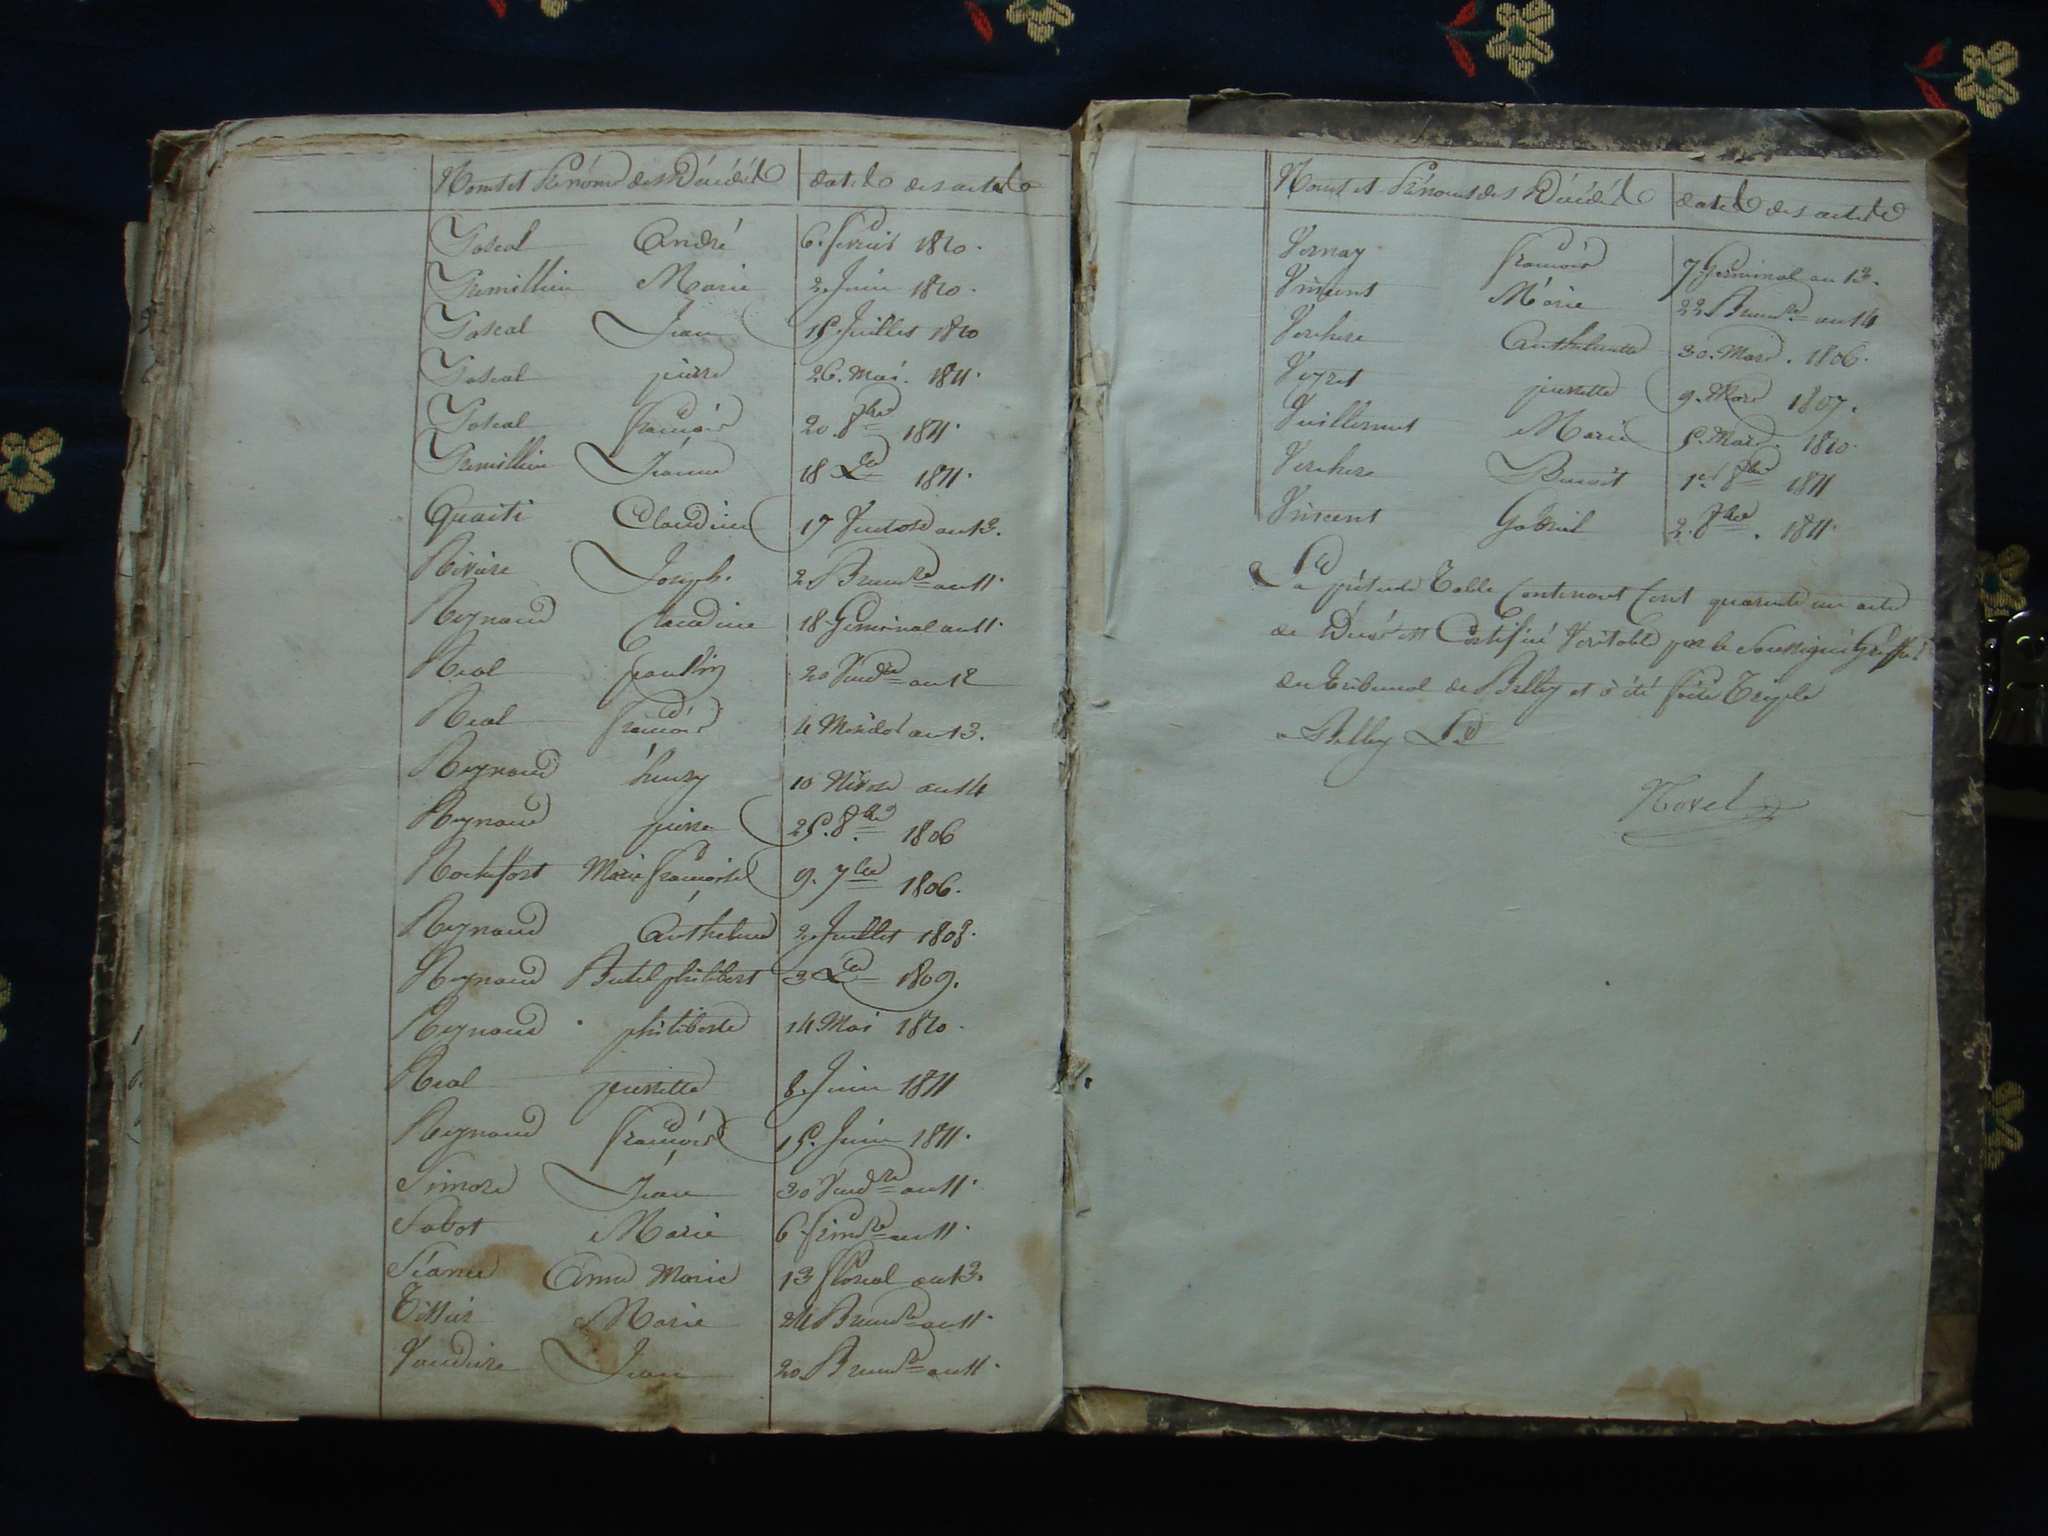 Noms et Prénoms des Décédés dates des actes
Pascal André 6. février 1810.
Premillieu Marie 2. Juin 1810.
Pascal Jean 15 Juillet 1810
Pascal pierre 26. Mai. 1811.
Pascal françois 20. 8bre 1811.
Premillieu Jeanne 18 Xbre 1811.
Quaiti Claudine 17 Ventose an 13.
Riviere Joseph. 2 Brumre an 11.
Reynaud Claudine 18 Germinal an 11.
Real 20 Vendre an 12
Real françois 4 Messidor an 13.
Reynaud henry 10 Nivose an 14
Reynaud pierre 25. 8bre 1806
Rochefort Marie françoise 9. 7bre 1806.
Reynaud Anthelme 2. Juillet 1808.
Reynaud Butel philibert 3 Xbre 1809.
Reynaud philiberte 14 Mai 1810.
Real pierrette 8. Juin 1811
Reynaud françois 15. Juin 1811.
Simon Jean 30 Vendre an 11.
Sabot Marie 6. frimre an 11.
Anne Marie 13 floreal an 13.
Tissier Marie 24 Brumre an 11.
Jean 20 Brumre an 11.
Noms et Prénoms des Décédés dates des actes
Vernay françois 7 Germinal an 13.
Vincent Marie 22 Brumre an 14
Verchere Anthelmette 30. Mars. 1806.
Veyret pierrette 9. Mars 1807.
Vuillermet Marie 5. Mars. 1810.
Verchere Benoit 1er 8bre 1811
Vincent Gabriel 2. 7bre. 1811.
La présente Table Contenant Cent quarante un actes
de Décès est Certifiée Véritable par le Soussigné Greffier
du tribunal de Belley et à été faite Triple
a Belley Le
Novel